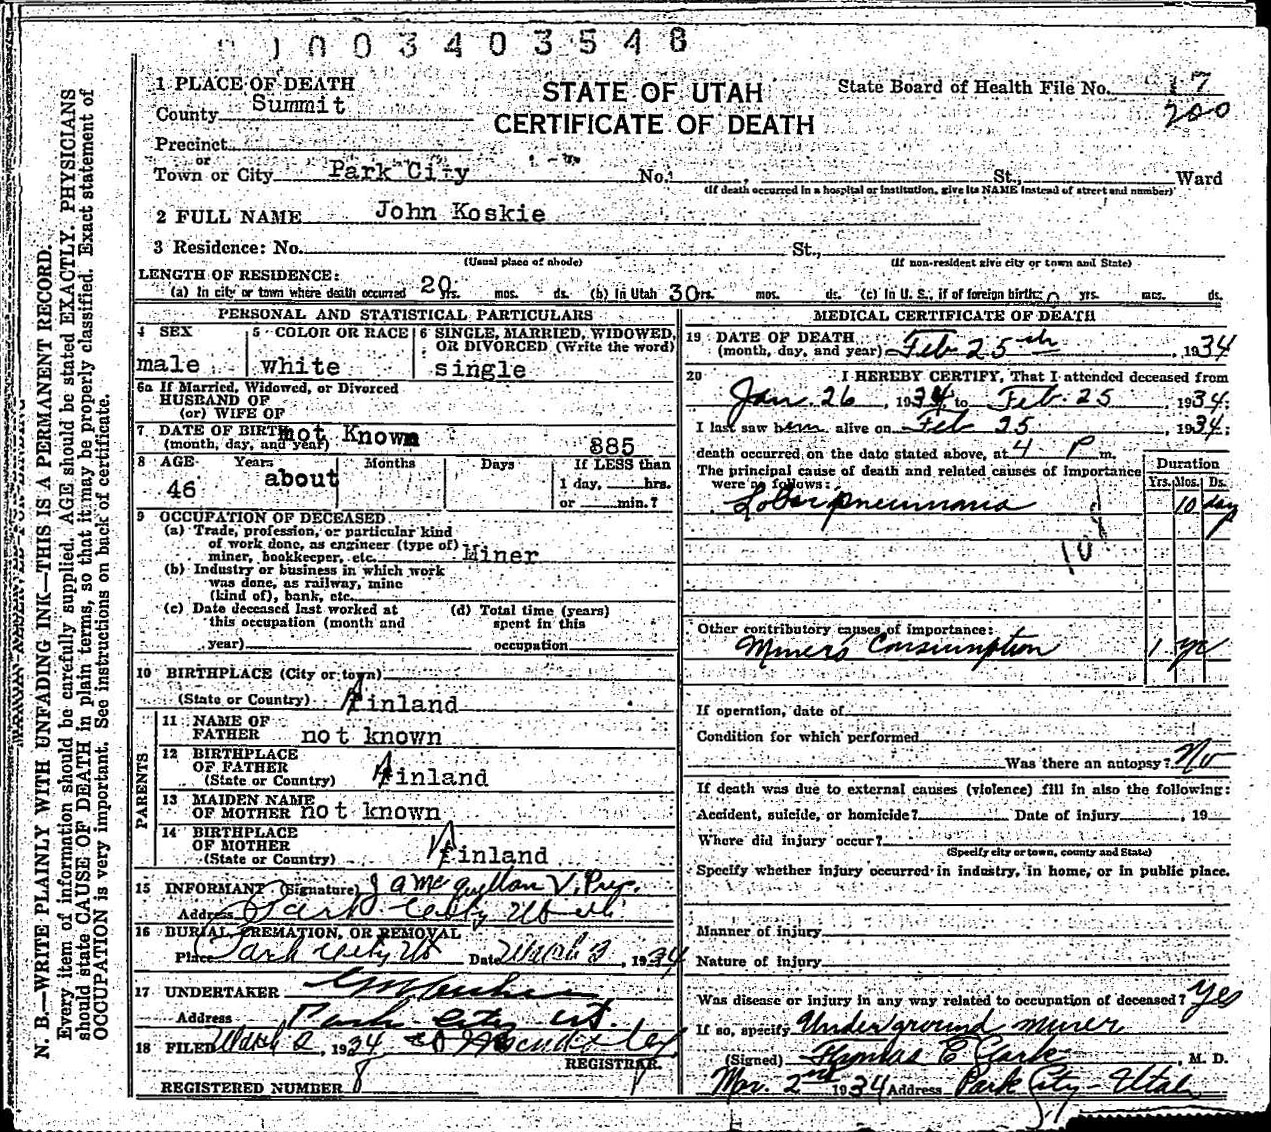 0 1 0 0 3 4 0 3 5 4 8
1 PLACE OF DEATH
County Summit
Precinct
or
Town or City Park City
STATE OF UTAH
CERTIFICATE OF DEATH
State Board of Health File No. 17
200
No. St., Ward
(If death occurred in a hospital or institution, give its NAME instead of street and number)
2 FULL NAME John Koskie
3 Residence: No. St.,
(Usual place of abode) (If non-resident give city or town and State)
LENGTH OF RESIDENCE:
(a) In city or town where death occurred 20 yrs. mos. ds. (b) In Utah 30 yrs. mos. ds. (c) In U. S., if of foreign birth: yrs. mos. ds.
PERSONAL AND STATISTICAL PARTICULARS
4 SEX
male
5 COLOR OR RACE
white
6 SINGLE, MARRIED, WIDOWED,
OR DIVORCED (Write the word)
single
6a If Married, Widowed, or Divorced
HUSBAND OF
(or) WIFE OF
7 DATE OF BIRTH not Known
(month, day, and year) 885
8 AGE Years Months Days If LESS than
46 about 1 day, hrs.
or min.?
9 OCCUPATION OF DECEASED
(a) Trade, profession, or particular kind
of work done, as engineer (type of)
miner, bookkeeper, etc. Miner
(b) Industry or business in which work
was done, as railway, mine
(kind of), bank, etc.
(c) Date deceased last worked at (d) Total time (years)
this occupation (month and spent in this
year) occupation
10 BIRTHPLACE (City or town)
(State or Country) Finland
PARENTS
11 NAME OF
FATHER not known
12 BIRTHPLACE
OF FATHER
(State or Country) Finland
13 MAIDEN NAME
OF MOTHER not known
14 BIRTHPLACE
OF MOTHER
(State or Country) Finland
15 INFORMANT (Signature) J A McQuillan V. Pres.
Address Park City Utah
16 BURIAL, CREMATION, OR REMOVAL
Place Park City Ut Date March 2, 1934
17 UNDERTAKER
Address Park City Ut.
18 FILED March 2, 1934
REGISTRAR.
REGISTERED NUMBER 8
MEDICAL CERTIFICATE OF DEATH
19 DATE OF DEATH
(month, day, and year) Feb 25th, 1934
20 I HEREBY CERTIFY, That I attended deceased from
Jan. 26, 1934 to Feb. 25, 1934;
I last saw him alive on Feb 25, 1934;
death occurred on the date stated above, at 4 P m.
The principal cause of death and related causes of importance
were as follows:
Duration
Yrs. Mos. Ds.
Lobar pneumonia 10 days
Other contributory causes of importance:
Miners Consumption 1 yr
If operation, date of
Condition for which performed
Was there an autopsy? No
If death was due to external causes (violence) fill in also the following:
Accident, suicide, or homicide? Date of injury , 19
Where did injury occur?
(Specify city or town, county and State)
Specify whether injury occurred in industry, in home, or in public place.
Manner of injury
Nature of injury
Was disease or injury in any way related to occupation of deceased? Yes
If so, specify Underground miner
(Signed) Thomas E Clark, M. D.
Mar. 2nd 1934 Address Park City - Utah
N. B.—WRITE PLAINLY WITH UNFADING INK—THIS IS A PERMANENT RECORD.
Every item of information should be carefully supplied. AGE should be stated EXACTLY. PHYSICIANS
should state CAUSE OF DEATH in plain terms, so that it may be properly classified. Exact statement of
OCCUPATION is very important. See instructions on back of certificate.